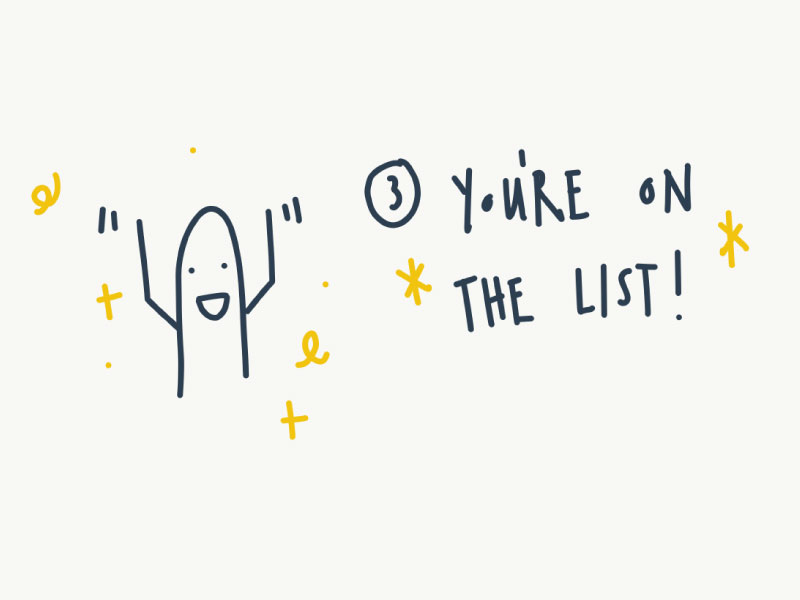 ③ YOU'RE ON
THE LIST!